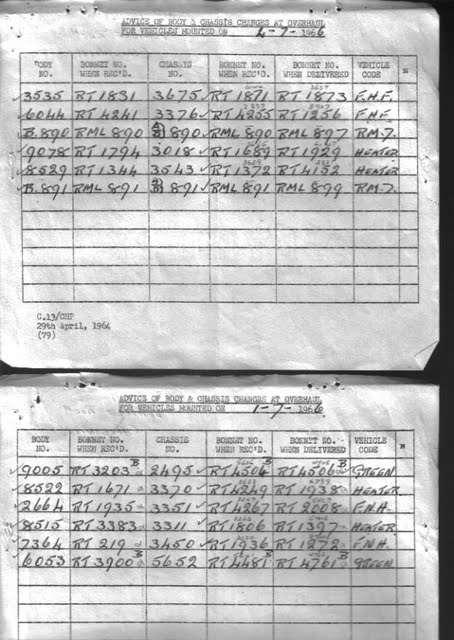 ADVICE OF BODY & CHASSIS CHANGES AT OVERHAUL
FOR VEHICLES MOUNTED ON 4-7-1966
BODY NO. BONNET NO. WHEN REC'D. CHASSIS NO. BONNET NO. WHEN REC'D. BONNET NO. WHEN DELIVERED VEHICLE CODE
3535 RT 1831 3675 RT 1871 RT 1873 F.N.F.
6044 RT 4241 3376 RT 4255 RT 1256 F.N.F.
B.890 RML 890 890 RML 890 RML 897 R.M.7.
9078 RT 1794 3018 RT 1689 RT 1929 HEATER
8529 RT 1344 3543 RT 1372 RT 4152 HEATER
B.891 RML 891 891 RML 891 RML 899 R.M.7.
C.13/CHP
29th April, 1964
(79)
ADVICE OF BODY & CHASSIS CHANGES AT OVERHAUL
FOR VEHICLES MOUNTED ON 1-7-1966
BODY NO. BONNET NO. WHEN REC'D. CHASSIS NO. BONNET NO. WHEN REC'D. BONNET NO. WHEN DELIVERED VEHICLE CODE
9005 RT 3203 B 2495 RT 4506 B RT 4506 B GREEN
8522 RT 1671 3370 RT 4249 RT 1938 HEATER
2664 RT 1935 3351 RT 4267 RT 2008 F.N.H.
8515 RT 3383 3311 RT 1806 RT 1397 HEATER
7364 RT 219 3450 RT 1936 RT 1272 F.N.H.
6053 RT 3900 B 5652 RT 4481 B RT 4761 B GREEN